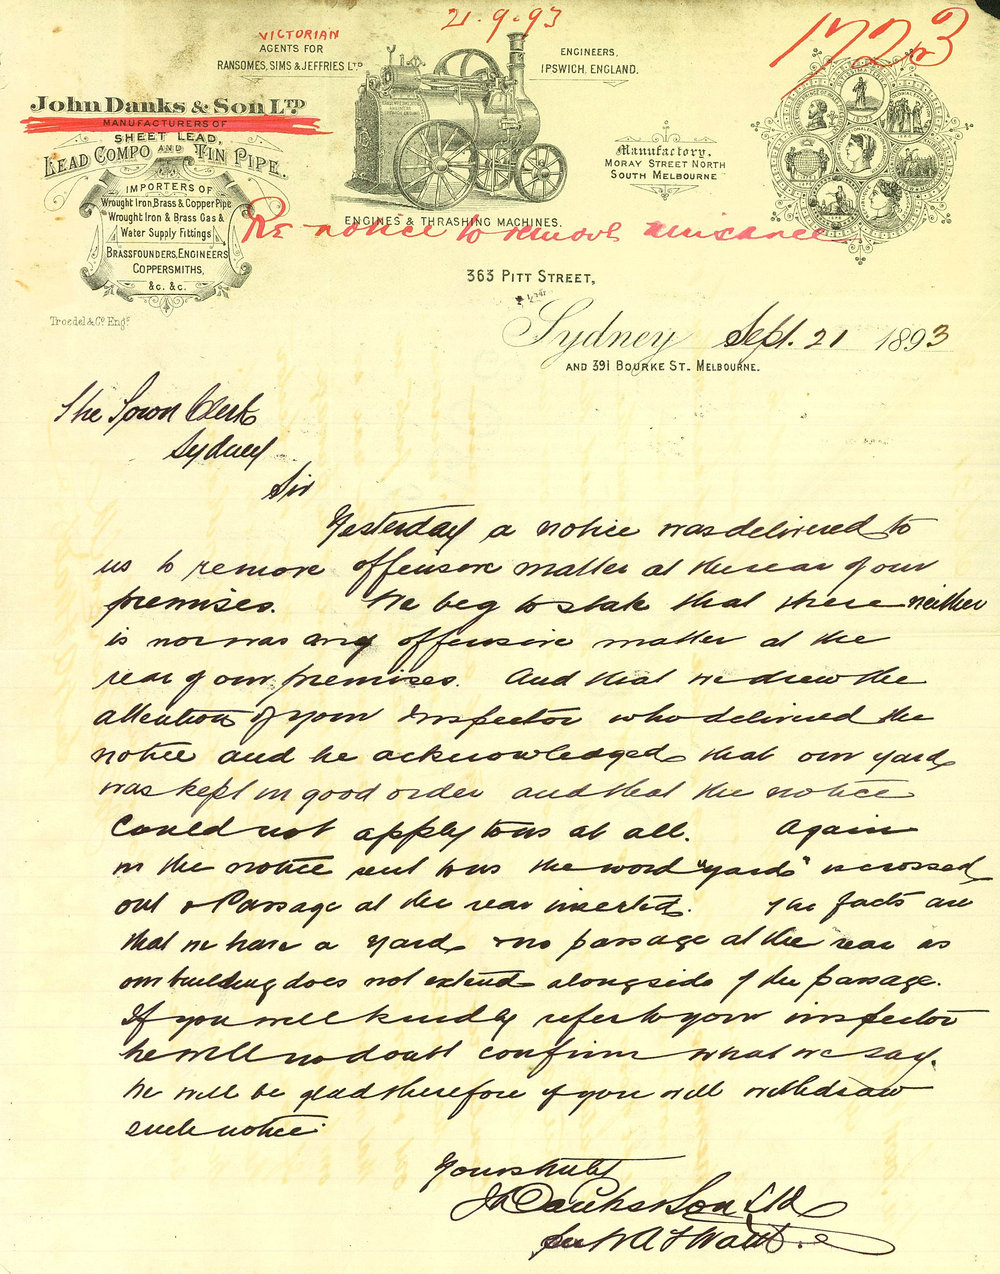 21.9.93
1723
VICTORIAN
AGENTS FOR
RANSOMES, SIMS & JEFFRIES LTD
ENGINEERS,
IPSWICH, ENGLAND.
John Danks & Son LTD
MANUFACTURERS OF
SHEET LEAD,
LEAD COMPO AND TIN PIPE.
IMPORTERS OF
Wrought Iron, Brass & Copper Pipe
Wrought Iron & Brass Gas &
Water Supply Fittings
BRASSFOUNDERS, ENGINEERS
COPPERSMITHS,
&c. &c.
Troedel & Co Engrs
Manufactory,
MORAY STREET NORTH
SOUTH MELBOURNE
ENGINES & THRASHING MACHINES.
Re notice to remove nuisance
363 PITT STREET,
Sydney Sept. 21 1893
AND 391 BOURKE ST. MELBOURNE.
The Town Clerk
Sydney
Sir
Yesterday a notice was delivered to
us to remove offensive matter at the rear of our
premises. We beg to state that there neither
is nor was any offensive matter at the
rear of our premises. And that we drew the
attention of your Inspector who delivered the
notice and he acknowledged that our yard
was kept in good order and that the notice
could not apply to us at all. Again
in the notice sent to us the word "yard" is crossed
out & Passage at the rear inserted. The facts are
that we have a yard & no passage at the rear as
our building does not extend alongside of the passage.
If you will kindly refer to your inspector
he will no doubt confirm what we say.
We will be glad therefore if you will withdraw
such notice.
Yours truly
Jn Danks & Son Ltd
per W A S Watt